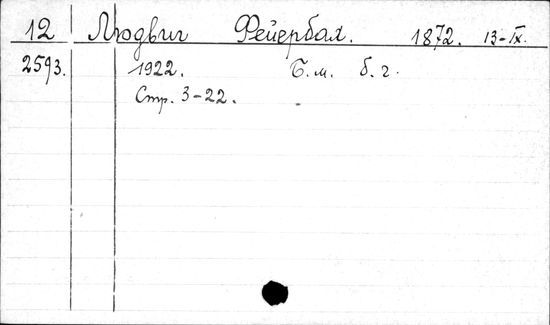 12 Людвиг Фейербах. 1872. 13-IX.
2593. 1922. Б.м. б.г.
Стр. 3-22.